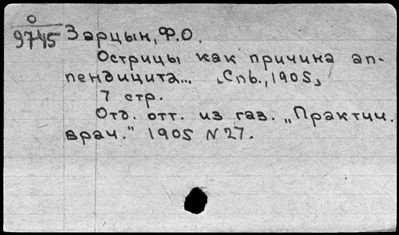 О
9745
Зарцын, Ф.О.
Острицы как причина ап-
пендицита... [Спб., 1905]
7 стр.
Отд. отт. из газ. „Практич.
врач." 1905 N 27.